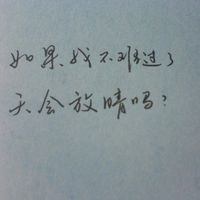 如果、我不难过了
天会放晴吗？